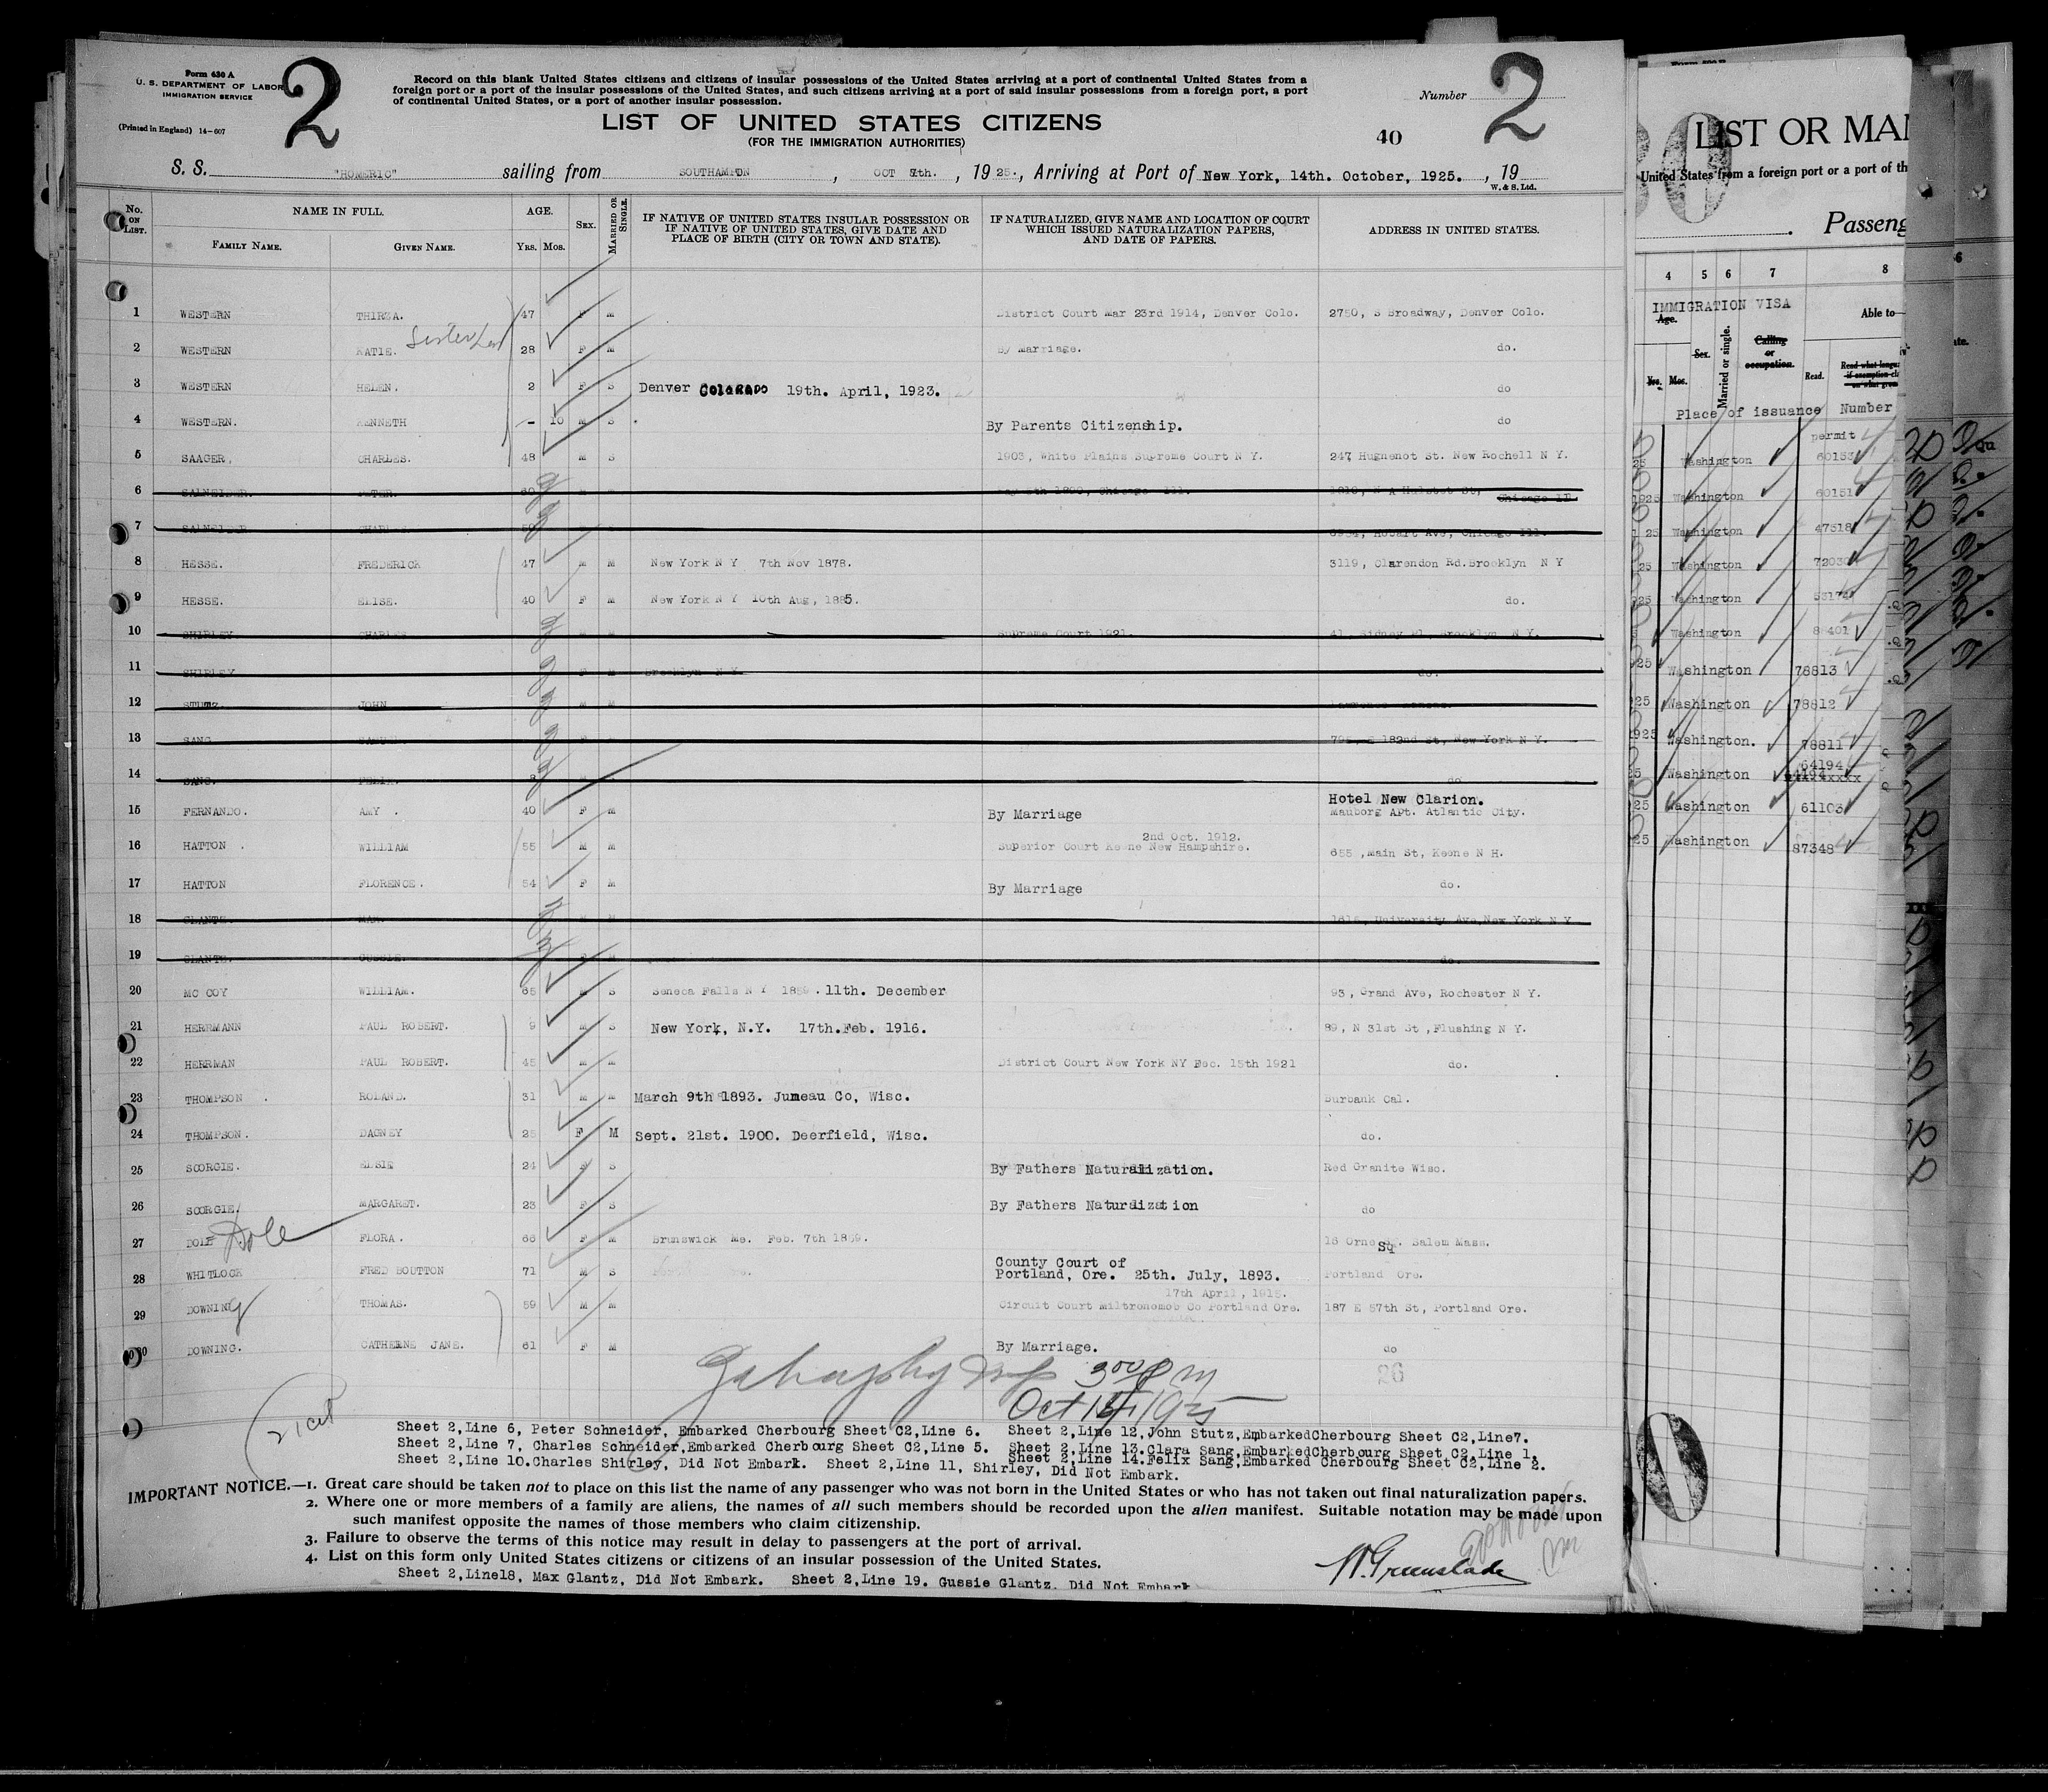 Form 630 A
U. S. DEPARTMENT OF LABOR
IMMIGRATION SERVICE
(Printed in England) 14-607
2
Record on this blank United States citizens and citizens of insular possessions of the United States arriving at a port of continental United States from a
foreign port or a port of the insular possessions of the United States, and such citizens arriving at a port of said insular possessions from a foreign port, a port
of continental United States, or a port of another insular possession.
Number
2
LIST OF UNITED STATES CITIZENS
(FOR THE IMMIGRATION AUTHORITIES)
40
S. S. "HOMERIC" sailing from SOUTHAMPTON, OCT 7th., 1925., Arriving at Port of New York, 14th. October, 1925., 19
W. & S. Ltd.
No. ON LIST. NAME IN FULL. AGE. SEX. MARRIED OR SINGLE. IF NATIVE OF UNITED STATES INSULAR POSSESSION OR IF NATIVE OF UNITED STATES, GIVE DATE AND PLACE OF BIRTH (CITY OR TOWN AND STATE). IF NATURALIZED, GIVE NAME AND LOCATION OF COURT WHICH ISSUED NATURALIZATION PAPERS, AND DATE OF PAPERS. ADDRESS IN UNITED STATES.
FAMILY NAME. GIVEN NAME. YRS. MOS.
1 WESTERN THIRZA. 47 F M District Court Mar 23rd 1914, Denver Colo. 2750, S Broadway, Denver Colo.
2 WESTERN KATIE. 28 F M By Marriage. do.
3 WESTERN HELEN. 2 F S Denver Colorado 19th. April, 1923. do
4 WESTERN. KENNETH - 10 M S By Parents Citizenship. do
5 SAAGER, CHARLES. 48 M S 1903, White Plains Supreme Court N Y. 247 Hugnenot St. New Rochell N Y.
6 SALNEIDER. PETER. 60 Chicago Ill. Chicago Ill
7 SALNEIDER CHARLES 6954, Hobart Ave, Chicago Ill.
8 HESSE. FREDERICK 47 M M New York N Y 7th Nov 1878. 3119, Clarendon Rd. Brooklyn N Y
9 HESSE. ELISE. 40 F M New York N Y 10th Aug, 1885. do.
10 SHIRLEY CHARLES Supreme Court 1921. 41, Sidney Pl, Brooklyn N Y.
11 SHIRLEY F M Brooklyn N Y. do.
12 STUTZ. JOHN M M
13 SANG 182nd St, New York N Y.
14 SANG. FELIX. do
15 FERNANDO. AMY. 40 F M By Marriage Hotel New Clarion.
Apt. Atlantic City.
2nd Oct. 1912.
16 HATTON. WILLIAM 55 M M Superior Court Keene New Hampshire. 655, Main St, Keene N H.
17 HATTON FLORENCE. 54 F M By Marriage do.
18 GLANTZ. MAX. University Ave, New York N Y
19 GLANTZ. GUSSIE. do.
20 MC COY WILLIAM. 65 M S Seneca Falls N Y 11th. December 93, Grand Ave, Rochester N Y.
21 HERRMANN PAUL ROBERT. 9 M S New York, N.Y. 17th.Feb. 1916. 89, N 31st St, Flushing N Y.
22 HERRMAN PAUL ROBERT. 45 M M District Court New York NY Dec. 15th 1921 do.
23 THOMPSON. ROLAND. 31 M M March 9th 1893. Juneau Co, Wisc. Burbank Cal.
24 THOMPSON. DAGNEY 25 F M Sept. 21st. 1900. Deerfield, Wisc. do.
25 SCORGIE. ELSIE 24 F S By Fathers Naturalization. Red Granite Wisc.
26 SCORGIE. MARGARET. 23 F S By Fathers Naturalization do
27 DOLE Dole FLORA. 66 F M Brunswick Me. Feb. 7th 1859. 16 Orne Sq. Salem Mass.
28 WHITLOCK FRED BOUTTON 71 M S County Court of
Portland, Ore. 25th. July, 1893. Portland Ore.
17th April, 1915.
29 DOWNING THOMAS. 59 M M Circuit Court Miltronomob Co Portland Ore. 187 E 57th St, Portland Ore.
30 DOWNING. CATHERINE JANE. 61 F M By Marriage. do
26
3 00 P M
Oct 14 1925
Sheet 2,Line 6, Peter Schneider, Embarked Cherbourg Sheet C2,Line 6. Sheet 2,Line 12,John Stutz,EmbarkedCherbourg Sheet C2,Line7.
Sheet 2,Line 7, Charles Schneider,Embarked Cherbourg Sheet C2,Line 5. Sheet 2,Line 13.Clara Sang,EmbarkedCherbourg Sheet C2,Line 1,
Sheet 2,Line 10.Charles Shirley, Did Not Embark. Sheet 2,Line 11, Shirley, Did Not Embark. Sheet 2,Line 14.Felix Sang,Embarked Cherbourg Sheet C2,Line 2.
IMPORTANT NOTICE.—1. Great care should be taken not to place on this list the name of any passenger who was not born in the United States or who has not taken out final naturalization papers.
2. Where one or more members of a family are aliens, the names of all such members should be recorded upon the alien manifest. Suitable notation may be made upon
such manifest opposite the names of those members who claim citizenship.
3. Failure to observe the terms of this notice may result in delay to passengers at the port of arrival.
4. List on this form only United States citizens or citizens of an insular possession of the United States.
Sheet 2,Line18, Max Glantz, Did Not Embark. Sheet 2,Line 19. Gussie Glantz. Did Not Embark
W. Greenslade
LIST OR MAN
United States from a foreign port or a port of th
Passeng
4 5 6 7 8
IMMIGRATION VISA
Age. Sex. Married or single. Calling or occupation. Able to—
Yrs. Mos. Read.
Place of issuance Number
permit
25 Washington 60153
1925 Washington 60151
25 Washington 47518
25 Washington 72030
925 Washington 53174
Washington 88401
25 Washington 78813
25 Washington 78812
1925 Washington. 78811
64194
25 Washington
25 Washington 61103
25 Washington 87348